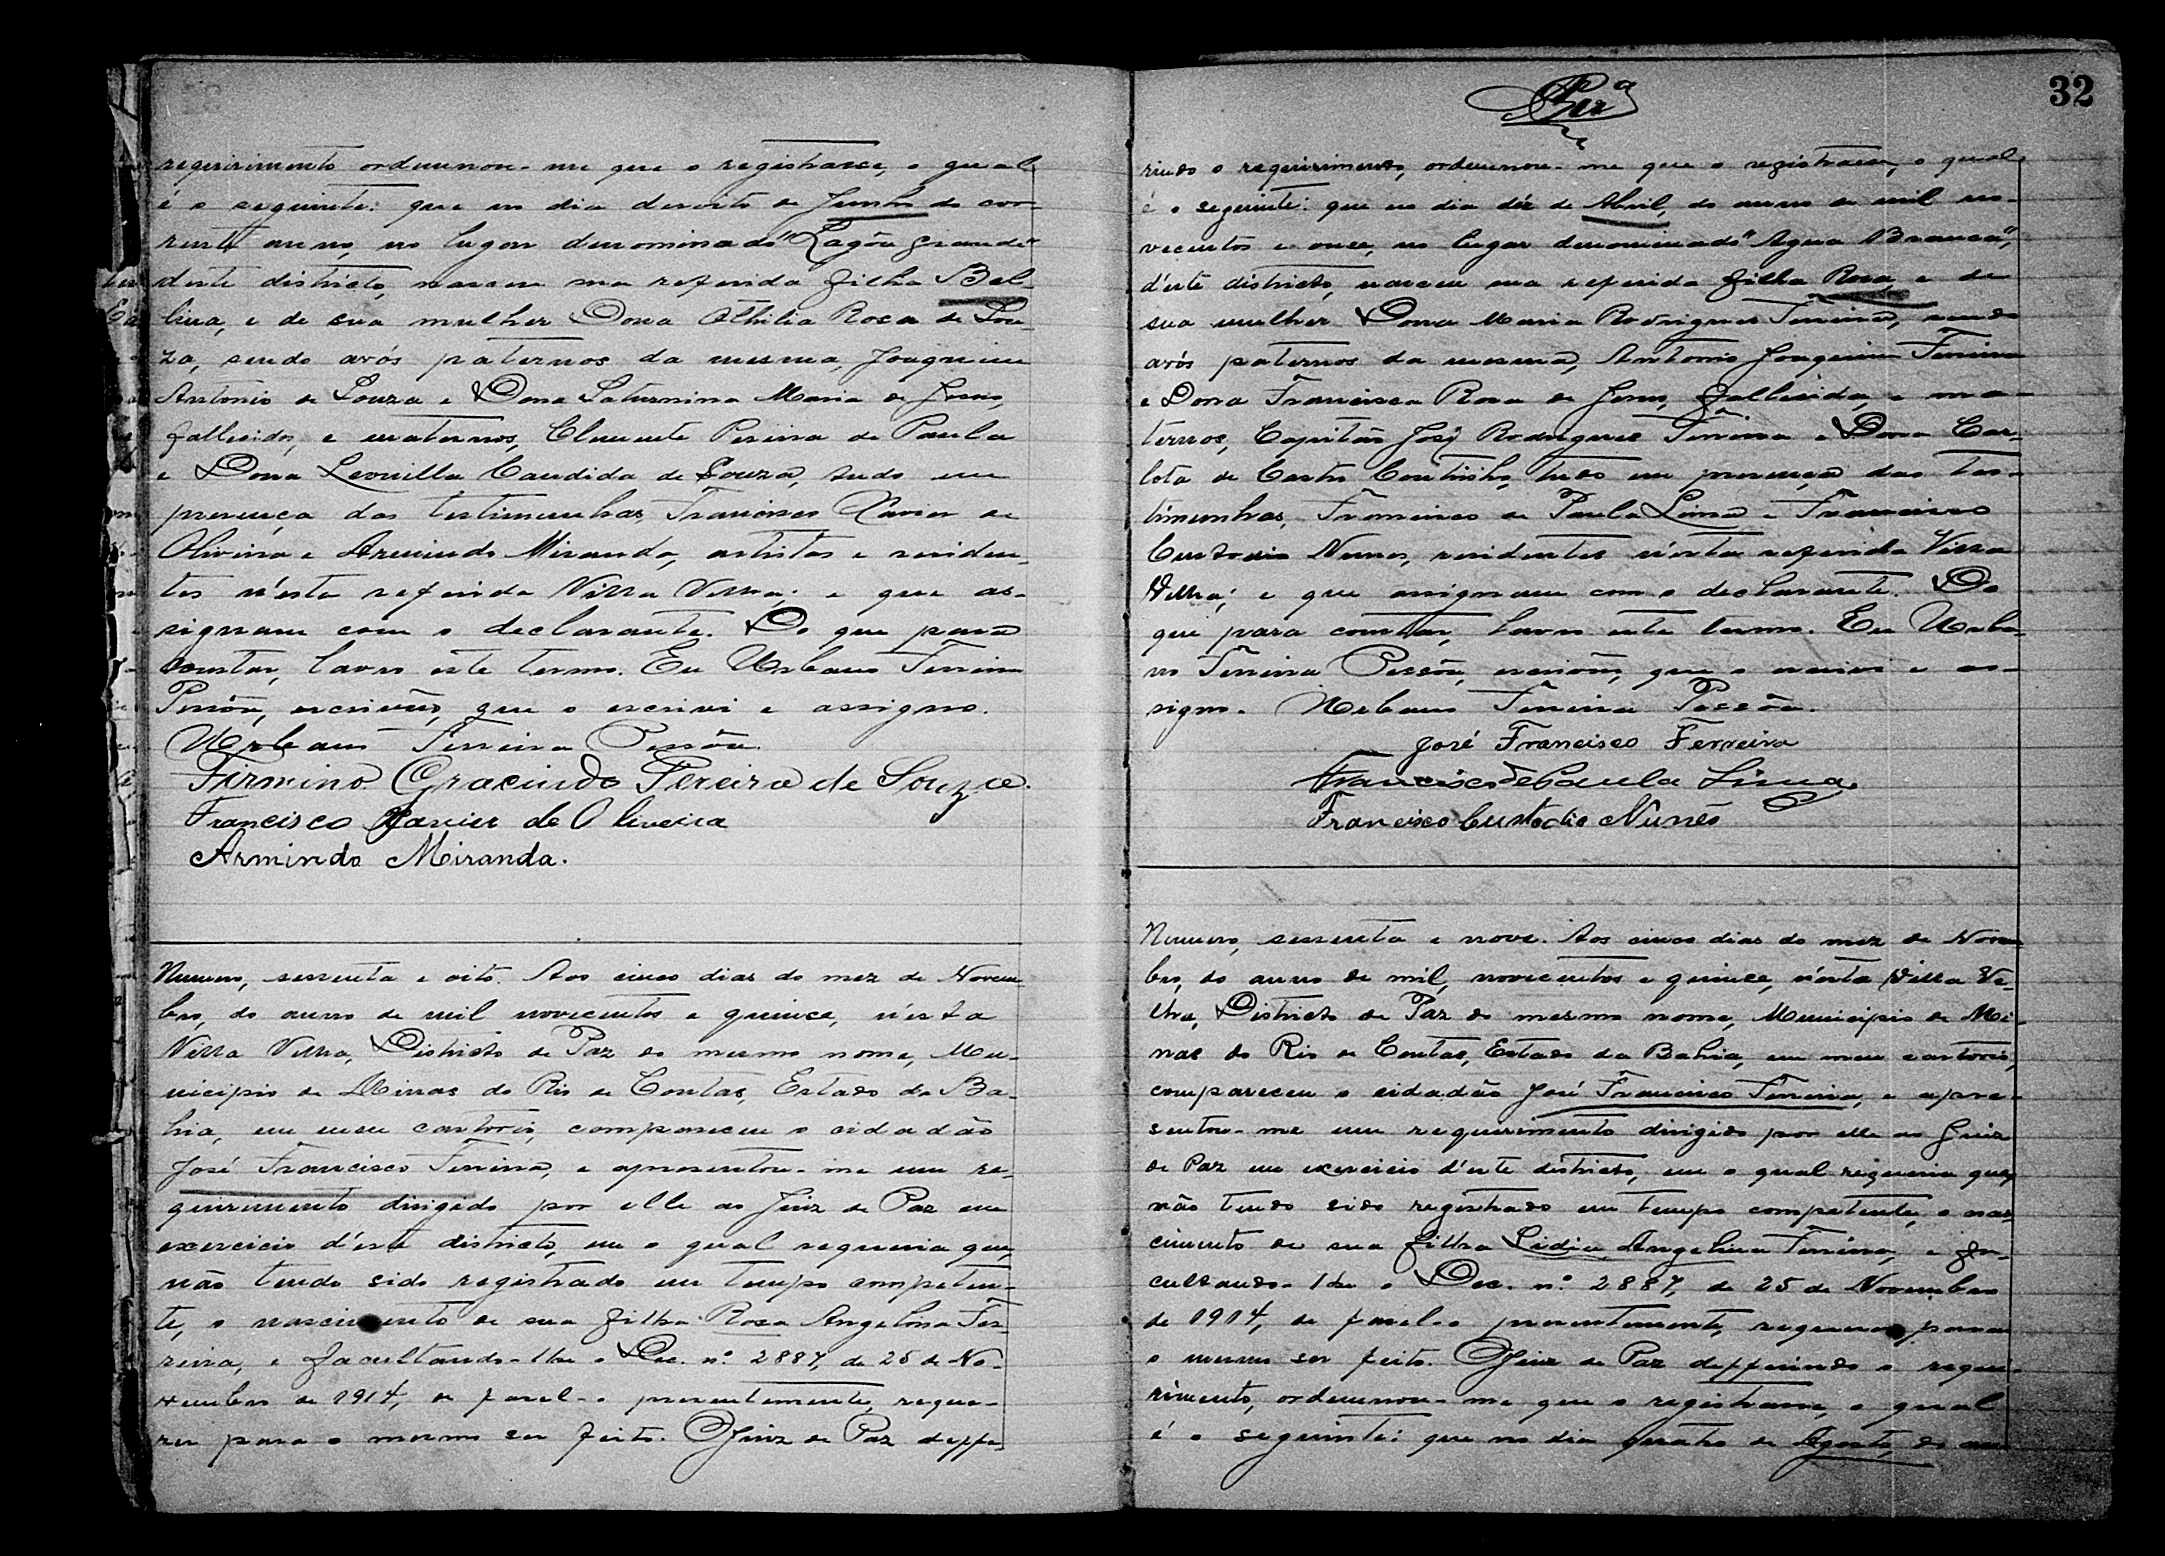 requirimento ordennou-me que o registrasse, o qual
é o seguinte: que no dia desoito de Junho do cor-
rente anno, no lugar denominado "Lagôa grande"
deste districto, nasceu sua referida filha Bel-
lina, e de sua mulher Dona Othilia Rosa de Sou-
za, sendo avós paternos da mesma, Joaquim
Antonio de Souza e Dona Saturnina Maria de Jesus,
fallecidos, e maternos, Clemente Pereira de Paula
e Dona Leonilla Candida de Souza, tudo em
presença das testimunhas, Francisco Xavier de
Oliveira e Armindo Miranda, artistas e residen-
tes n'esta referida Villa Velha; e que as-
signam com o declarante. Do que para
constar, lavro este termo. Eu Urbano Ferreira
Pessôa, escrivão, que o escrivi e assigno.
Urbano Ferreira Pessôa
Firmino Gracindo Pereira de Souza.
Francisco Xavier de Oliveira
Armindo Miranda.
Numero, sessenta e oito. Aos cinco dias do mez de Novem-
bro, do anno de mil novecentos e quinze, n'esta
Villa Velha, Districto de Paz do mesmo nome, Mu-
nicipio de Minas do Rio de Contas, Estado da Ba-
hia, em meu cartorio, compareceu o cidadão
José Francisco Ferreira, e apresentou-me um re-
quirimento dirigido por elle ao Juiz de Paz em
exercicio d'este districto, em o qual requeria que,
não tendo sido registrado em tempo competen-
te, o nascimento de sua filha Rosa Angelina Fer-
reira, e facultando-lhe o Dec. nº 2887, de 25 de No-
vembro de 1914, de fasel-o presentemente, reque-
reu para o mesmo ser feito. O Juiz de Paz deffe-
32
rindo o requirimento, ordennou-me que o registrasse, o qual
é o seguinte: que no dia dez de Abril, do anno de mil no-
vecentos e onze, no lugar denominado "Agua Branca",
d'este districto, nasceu sua referida filha Rosa, e de
sua mulher Dona Maria Rodrigues Ferreira, sendo
avós paternos da mesma, Antonio Joaquim Ferreira
e Dona Francisca Rosa de Jesus, fallecida, e ma-
ternos, Capitão José Rodrigues Ferreira e Dona Car-
lota de Castro Coutinho, tudo em presença das tes-
timunhas, Francisco de Paula Lima e Francisco
Custodio Nunes, residentes n'esta referida Villa
Velha; e que assignam com o declarante. Do
que para constar, lavro este termo. Eu Urba-
no Ferreira Pessôa, escrivão, que o escrivi e as-
signo. Urbano Ferreira Pessôa.
José Francisco Ferreira
Francisco de Paula Lima
Francisco Custodio Nunes
Numero, sessenta e nove. Aos cinco dias do mez de Novem-
bro, do anno de mil, novecentos e quinze, n'esta Villa Ve-
lha, Districto de Paz do mesmo nome, Municipio de Mi-
nas do Rio de Contas, Estado da Bahia, em meu cartorio,
compareceu o cidadão José Francisco Ferreira, e apre-
sentou-me um requerimento dirigido por elle ao Juiz
de Paz em exercicio d'este districto, em o qual requeria que,
não tendo sido registrado em tempo competente, o nas-
cimento de sua filha Lidia Angelina Ferreira, e fa-
cultando-lhe o Dec. nº 2887, de 25 de Novembro
de 1914, de fasel-o presentemente, requereu para
o mesmo ser feito. O Juiz de Paz defferindo o reque-
rimento, ordennou-me que o registrasse, o qual
é o seguinte: que no dia quatro de Agosto, do an-